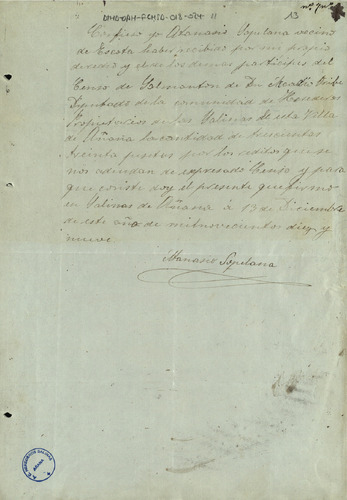 13
Certifico yo Atanasio Sopelana vecino
de Escota haber recibido por mi propio
derecho y el de los demas participes del
Censo de Salmanton de Dn
Diputado de la comunidad de Herederos
Propietarios de las Salinas de esta Villa
de Añana la cantidad de
treinta pesetas por los reditos que se
nos adeudan de expresado Censo y para
que conste doy el presente que firmo
en Salinas de Añana à 13 de Diciembre
de este año de mil novecientos diez y
nueve
Atanasio Sopelana
AÑANA